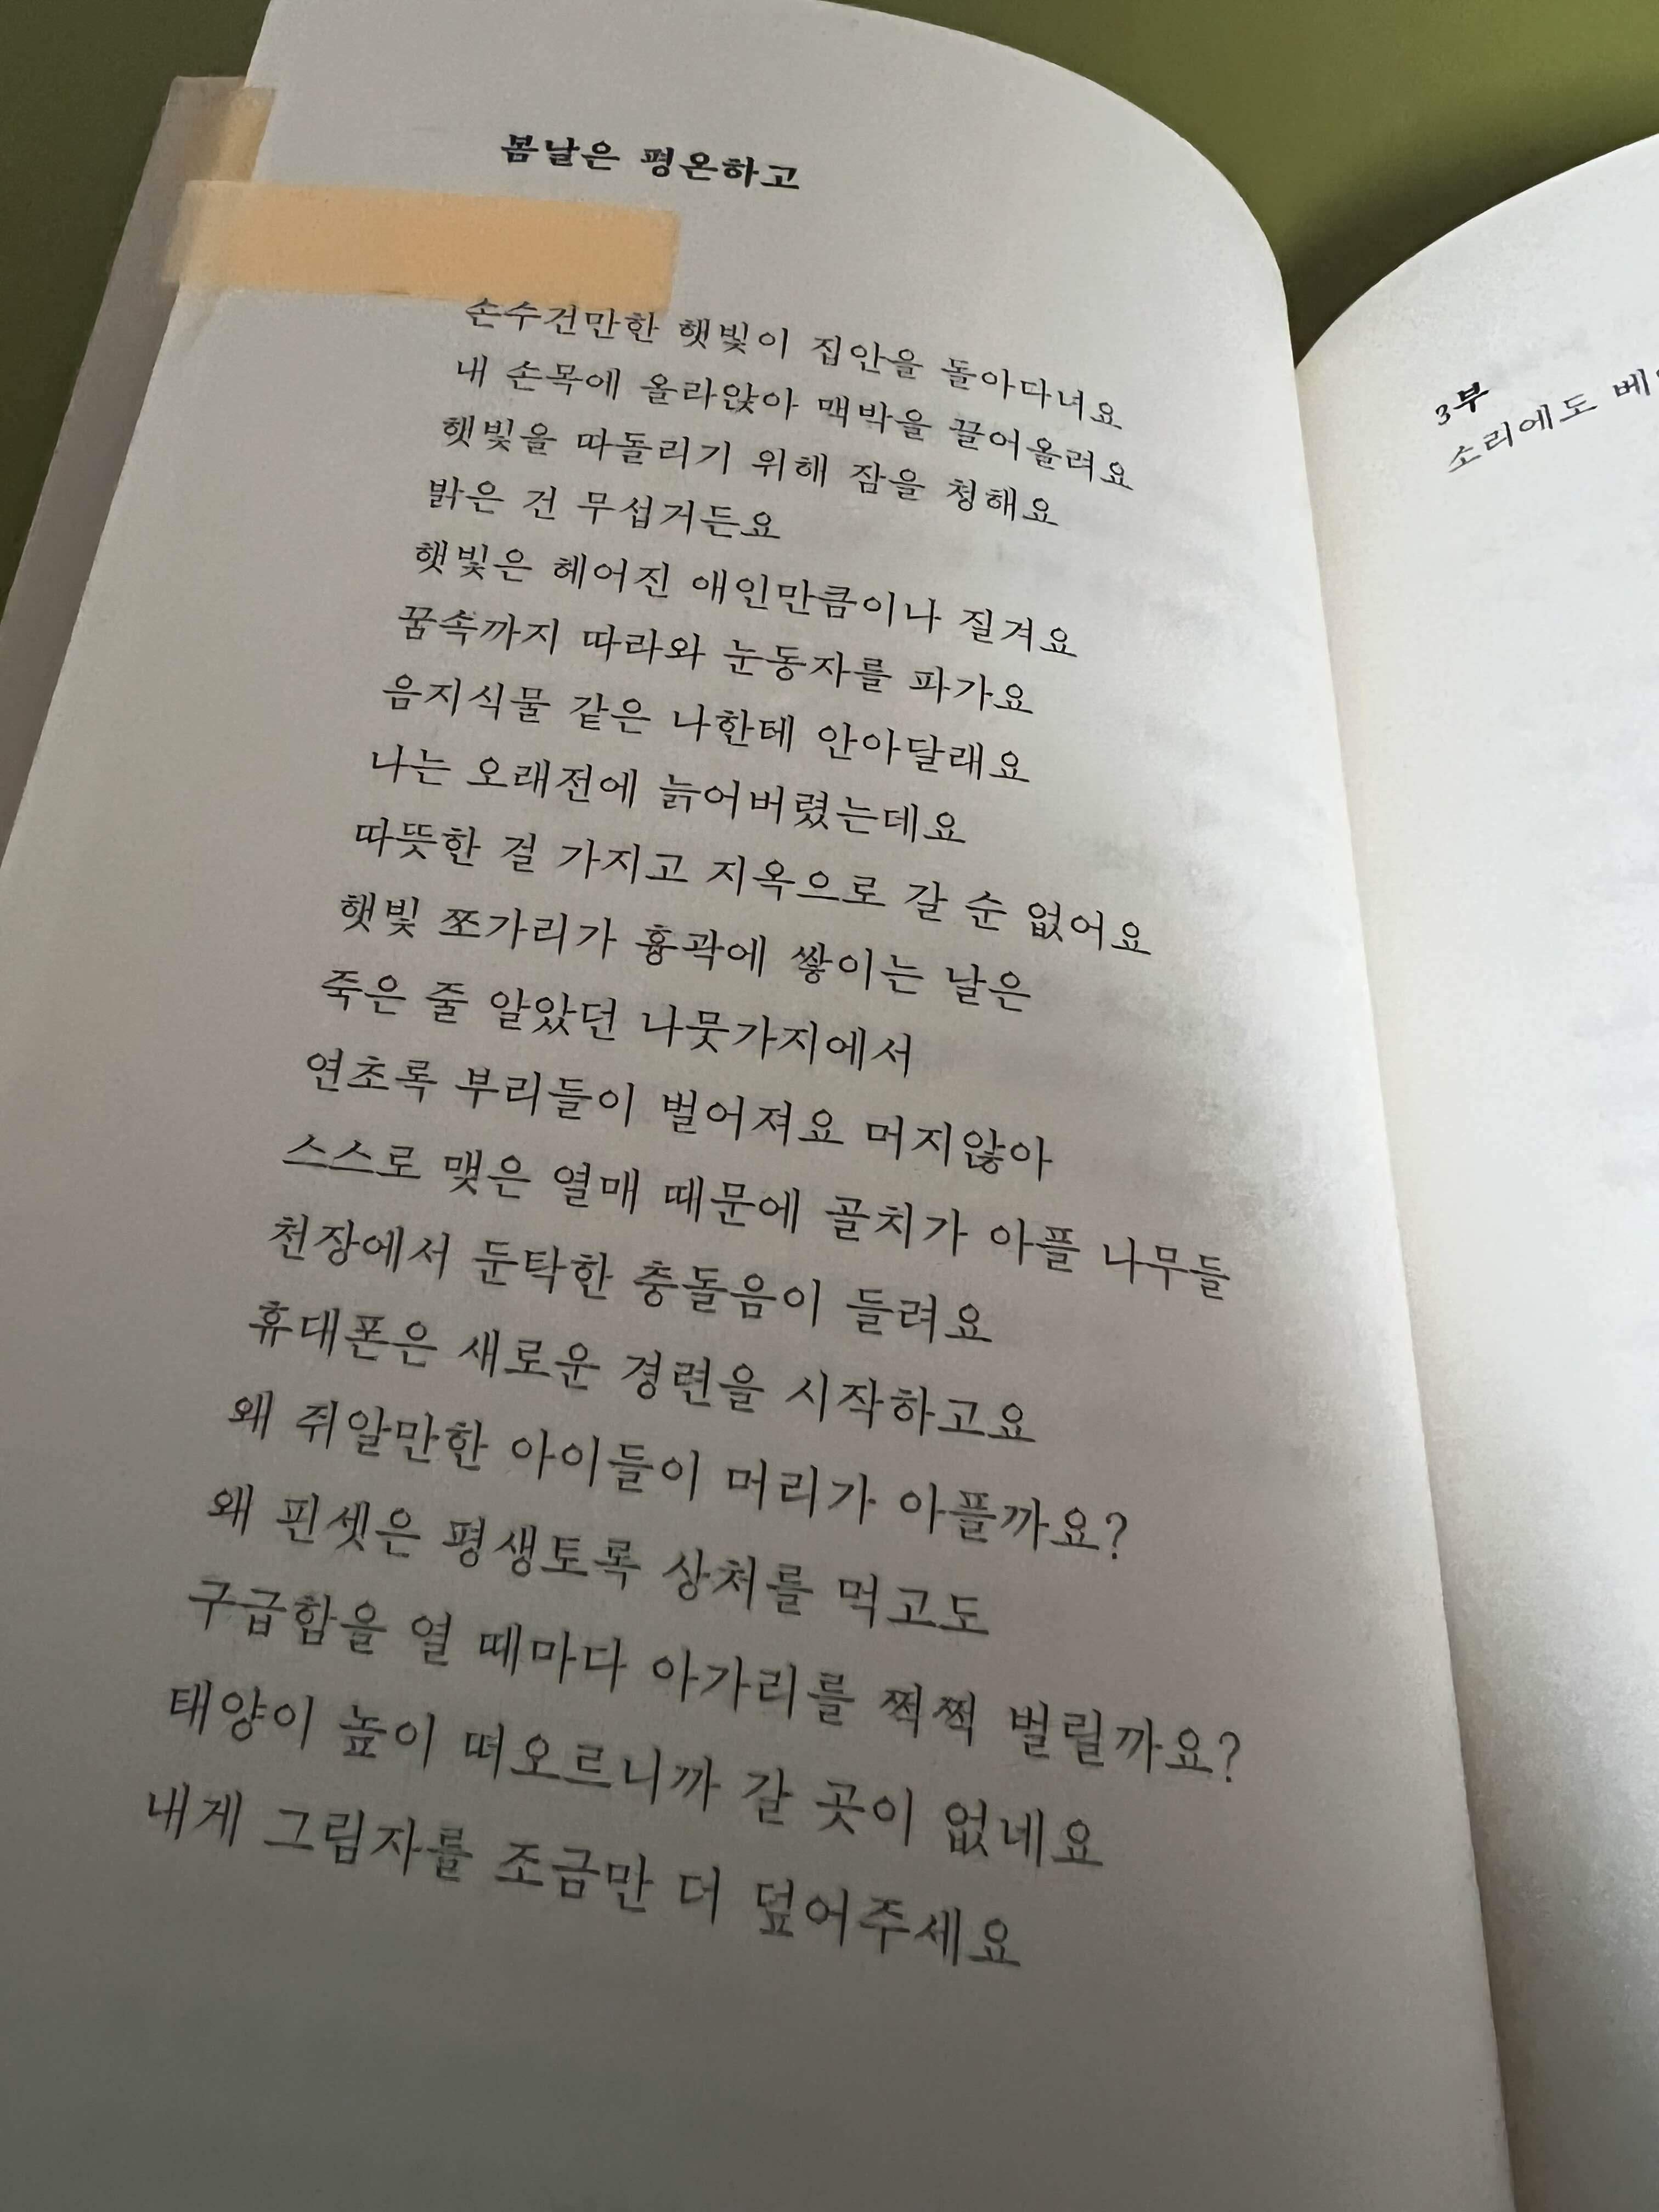 봄날은 평온하고
손수건만한 햇빛이 집안을 돌아다녀요
내 손목에 올라앉아 맥박을 끌어올려요
햇빛을 따돌리기 위해 잠을 청해요
밝은 건 무섭거든요
햇빛은 헤어진 애인만큼이나 질겨요
꿈속까지 따라와 눈동자를 파가요
음지식물 같은 나한테 안아달래요
나는 오래전에 늙어버렸는데요
따뜻한 걸 가지고 지옥으로 갈 순 없어요
햇빛 쪼가리가 흉곽에 쌓이는 날은
죽은 줄 알았던 나뭇가지에서
연초록 부리들이 벌어져요 머지않아
스스로 맺은 열매 때문에 골치가 아플 나무들
천장에서 둔탁한 충돌음이 들려요
휴대폰은 새로운 경련을 시작하고요
왜 쥐알만한 아이들이 머리가 아플까요?
왜 핀셋은 평생토록 상처를 먹고도
구급함을 열 때마다 아가리를 쩍쩍 벌릴까요?
태양이 높이 떠오르니까 갈 곳이 없네요
내게 그림자를 조금만 더 덮어주세요
3부
소리에도